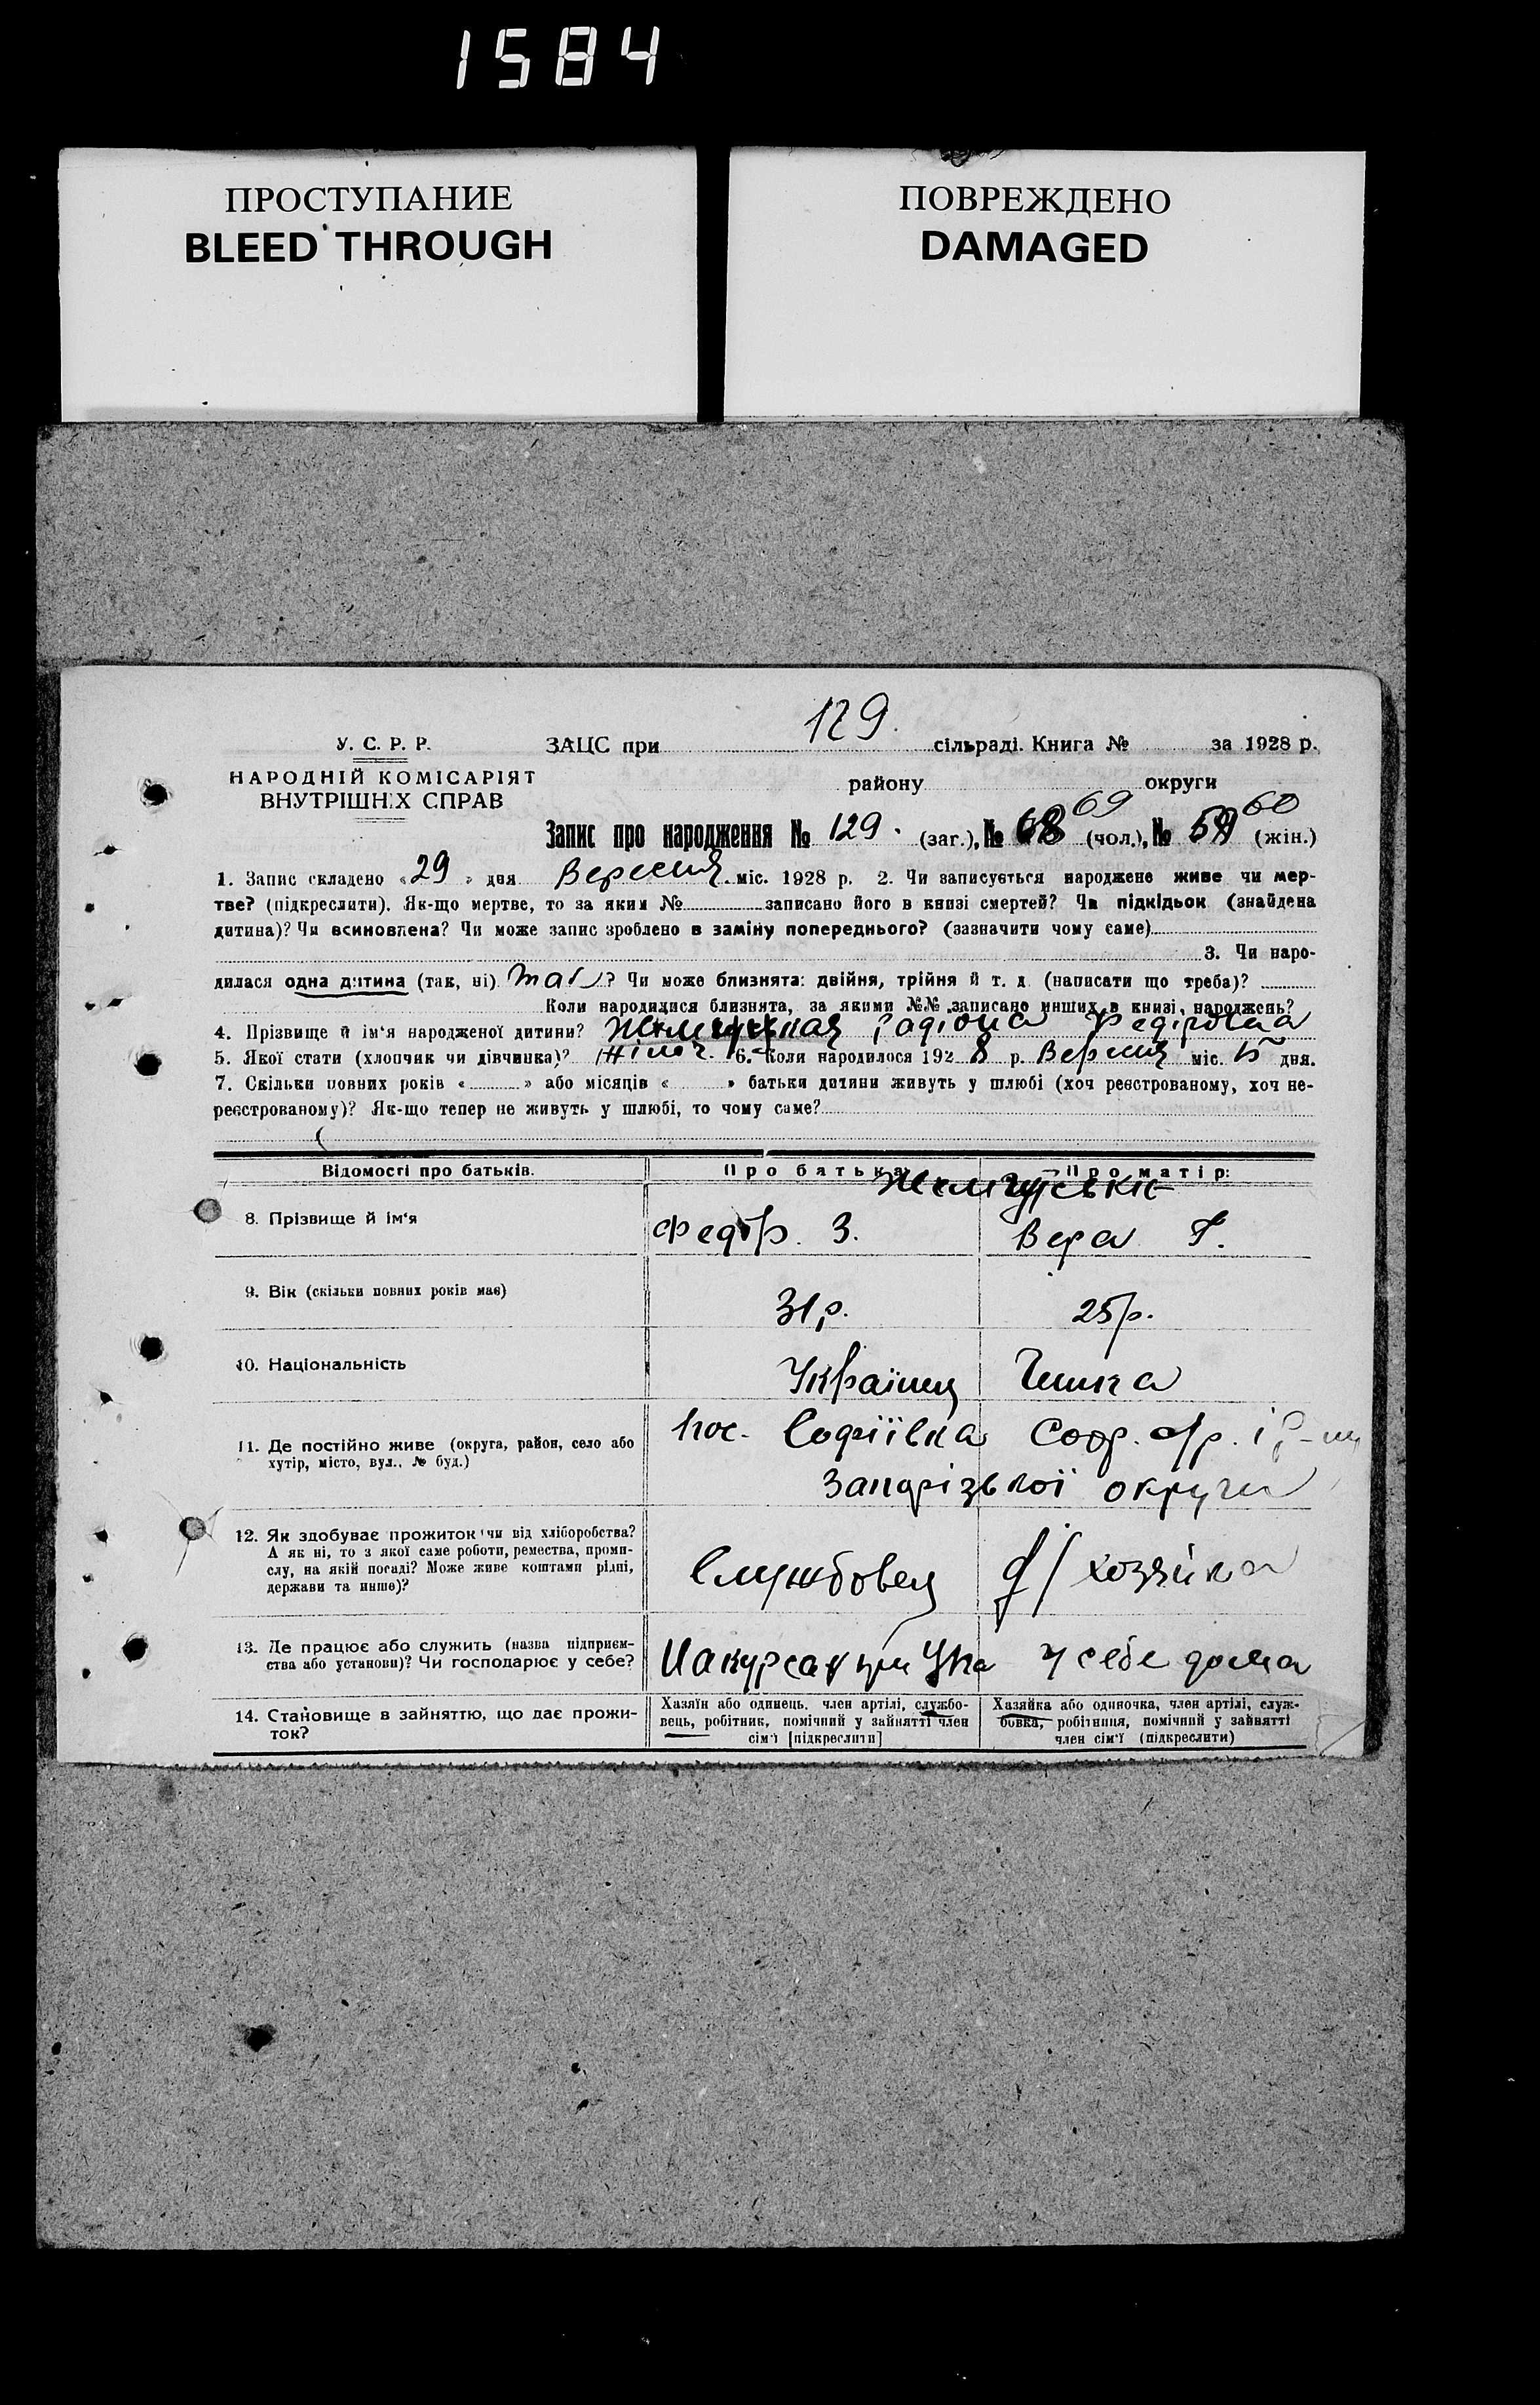 1584
ПРОСТУПАНИЕ
BLEED THROUGH
ПОВРЕЖДЕНО
DAMAGED
129.
У. С. Р. Р.
НАРОДНІЙ КОМІСАРІЯТ
ВНУТРІШНІХ СПРАВ
ЗАЦС при сільраді. Книга № за 1928 р.
району округи
69 60
Запис про народження № 129. (заг.), № 68 (чол.), № 59 (жін.)
1. Запис складено «29» дня Вересня міс. 1928 р. 2. Чи записується народжене живе чи мер-
тве? (підкреслити). Як-що мертве, то за яким № записано його в книзі смертей? Чи підкідьок (знайдена
дитина)? Чи всиновлена? Чи може запис зроблено в заміну попереднього? (зазначити чому саме)
3. Чи наро-
дилася одна дитина (так, ні) так? Чи може близнята: двійня, трійня й т. д. (написати що треба)?
Коли народилися близнята, за якими №№ записано инших в книзі, народжень?
4. Прізвище й ім'я народженої дитини? Федіровна
5. Якої стати (хлопчик чи дівчинка)? жіноч. 6. Коли народилося 1928 р. Вересня міс. 15 дня.
7. Скільки повних років « » або місяців « » батьки дитини живуть у шлюбі (хоч реєстрованому, хоч не-
реєстрованому)? Як-що тепер не живуть у шлюбі, то чому саме?
Відомості про батьків. Про батька: Про матір:
8. Прізвище й ім'я Федір З. Вера Г.
9. Вік (скільки повних років має) 31 р. 25 р.
10. Національність Українец Чешка
11. Де постійно живе (округа, район, село або
хутір, місто, вул., № буд.)
пос. Софіївка Соф.
Запорізької округи
12. Як здобуває прожиток чи від хліборобства?
А як ні, то з якої саме роботи, ремества, проми-
слу, на якій посаді? Може живе коштами рідні,
держави та инше)?
Службовец д/хозяйка
13. Де працює або служить (назва підприєм-
ства або установи)? Чи господарює у себе?
На курсах при у себе дома
14. Становище в зайняттю, що дає прожи-
ток?
Хазяїн або одинець, член артілі, службо-
вець, робітник, помічний у зайнятті член
сім'ї [підкреслити]
Хазяйка або одиночка, член артілі, служ-
бовка, робітниця, помічний у зайнятті
член сім'ї (підкреслити)